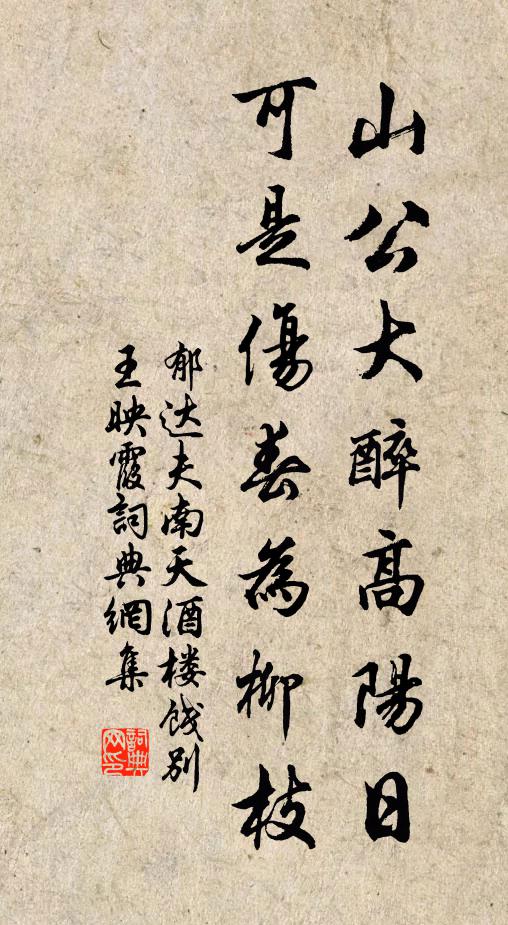 山公大醉高陽日
可是傷春為柳枝
郁达夫南天酒楼饯别
王映霞詞典網集
詞典网印